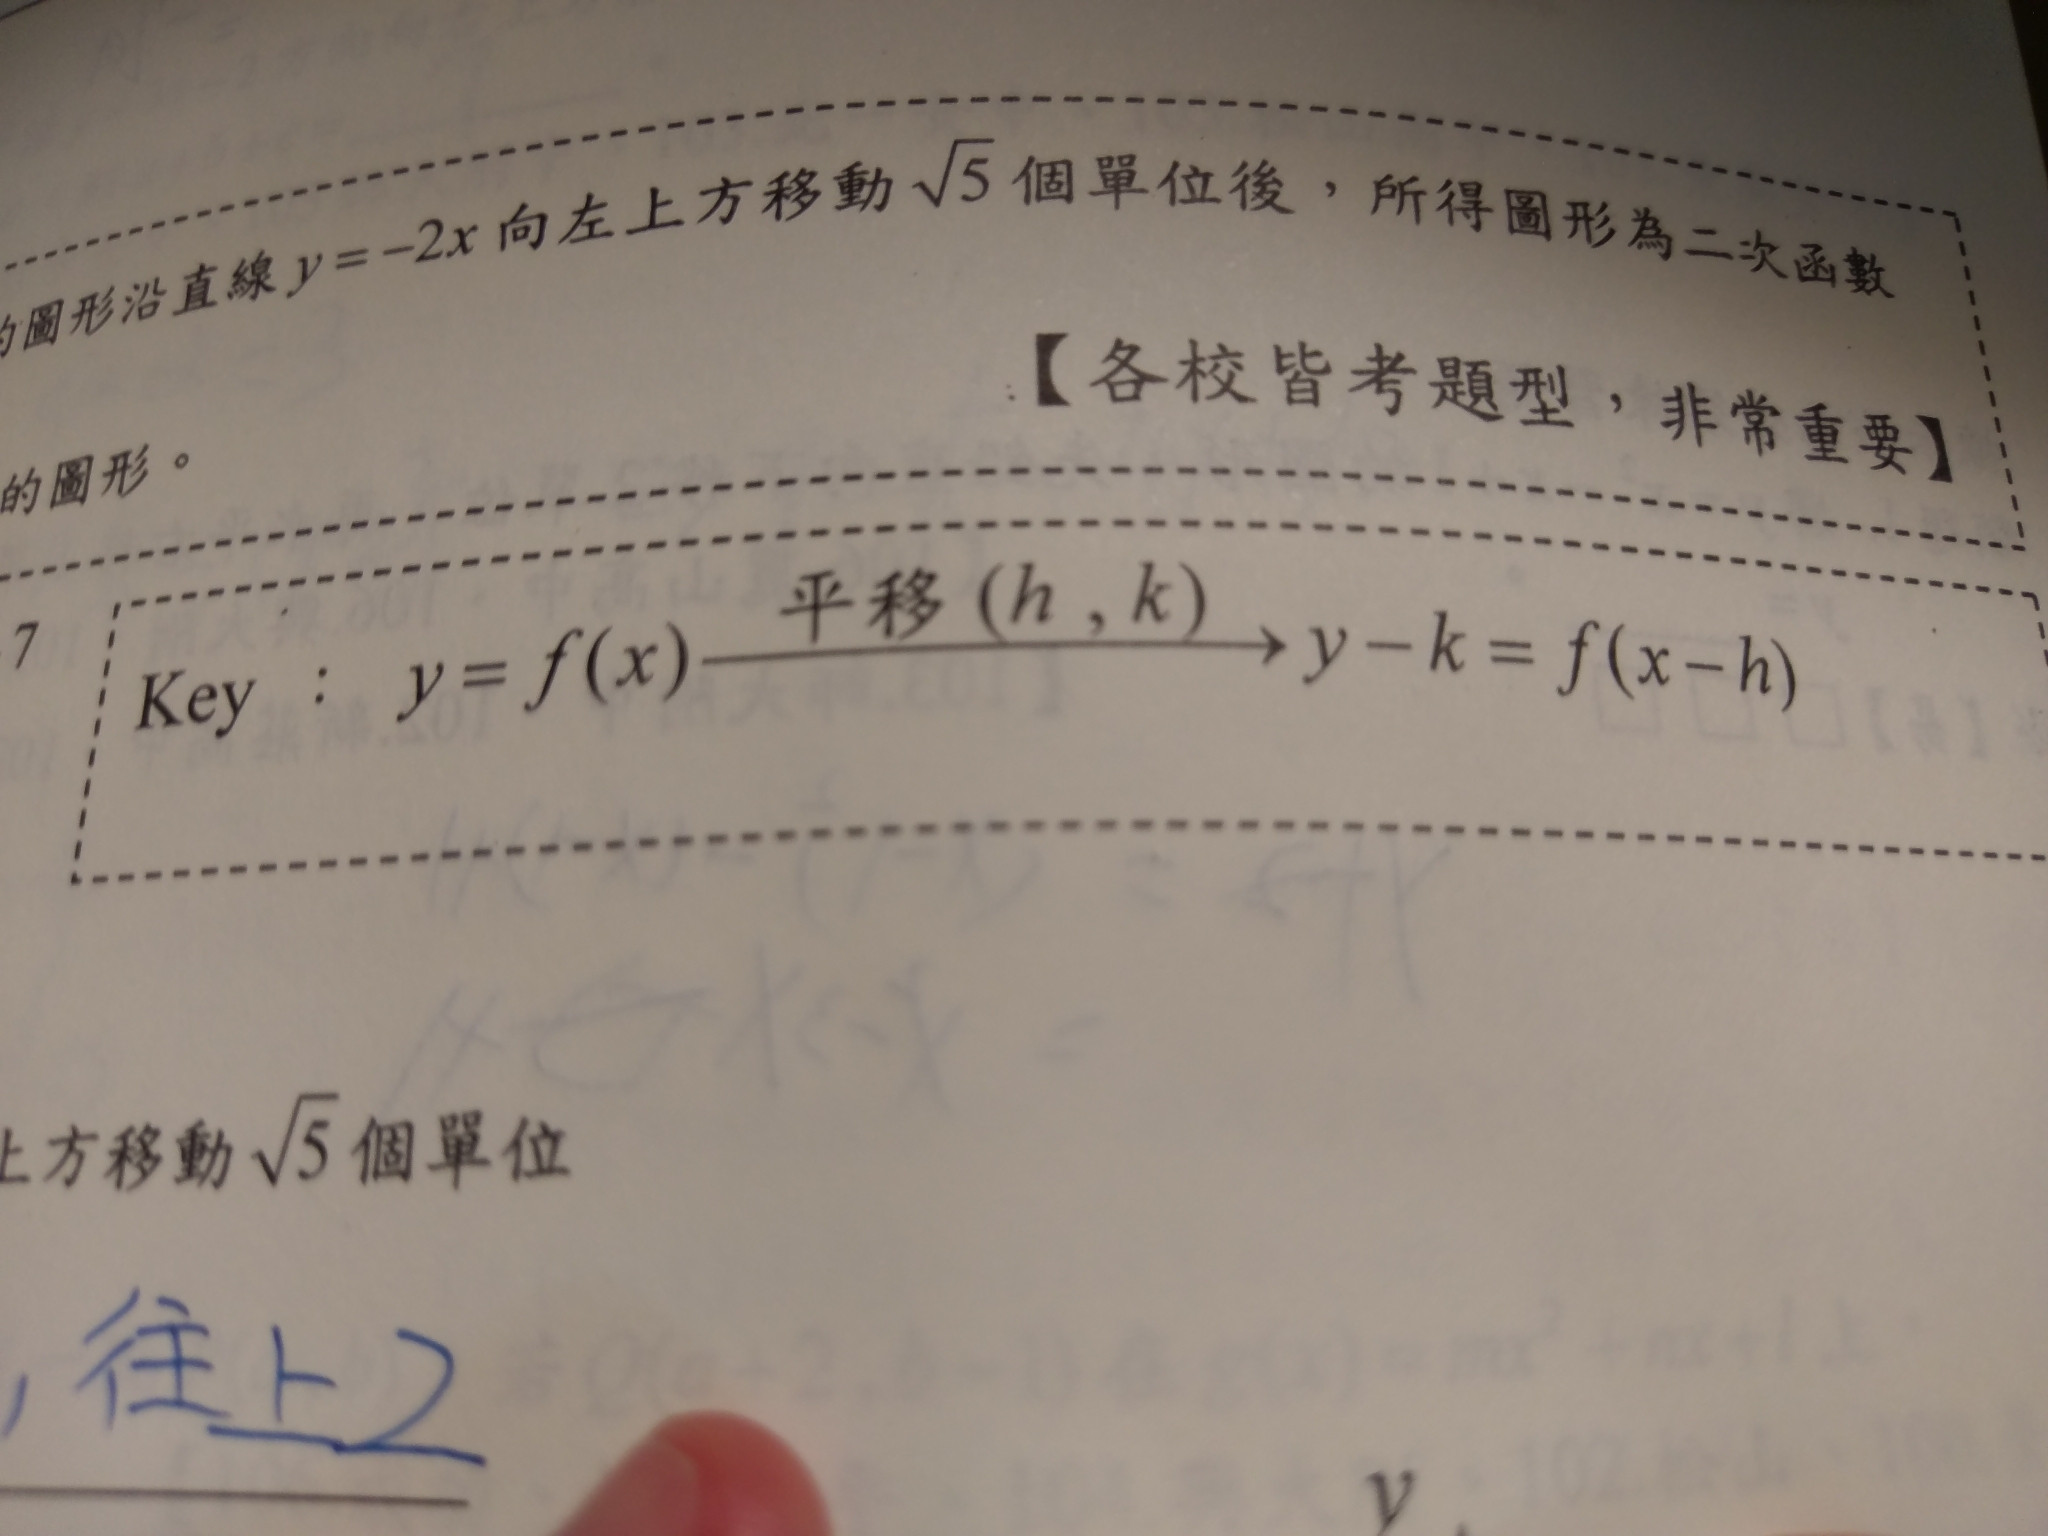 的圖形沿直線 y = −2x 向左上方移動 √5 個單位後，所得圖形為二次函數
【各校皆考題型，非常重要】
的圖形。
7
Key ： y = f(x) 平移 (h , k) → y − k = f(x − h)
上方移動 √5 個單位
, 往上2
y